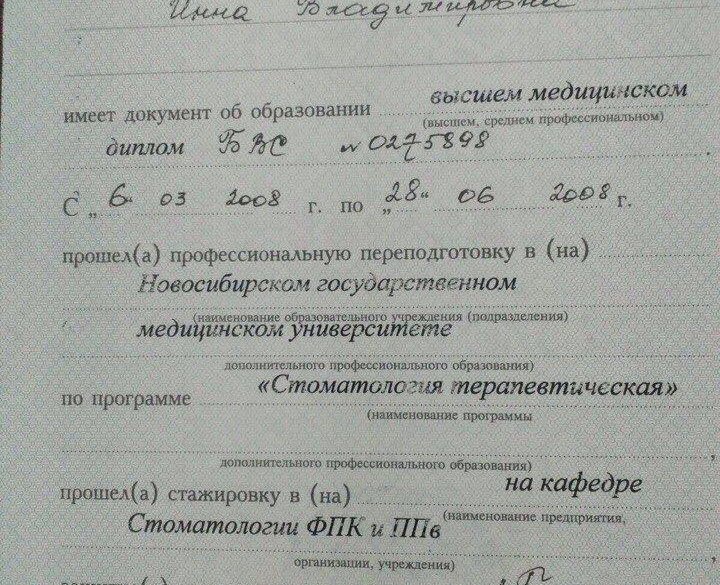 Инна Владимировна
высшем медицинском
имеет документ об образовании
(высшем, среднем профессиональном)
диплом БВС № 0275898
С „ 6 “ 03 2008 г. по „ 28 “ 06 2008 г.
прошел(а) профессиональную переподготовку в (на)
Новосибирском государственном
(наименование образовательного учреждения (подразделения)
медицинском университете
дополнительного профессионального образования)
«Стоматология терапевтическая»
по программе
(наименование программы
дополнительного профессионального образования)
на кафедре
прошел(а) стажировку в (на)
(наименование предприятия,
Стоматологии ФПК и ППв
организации, учреждения)